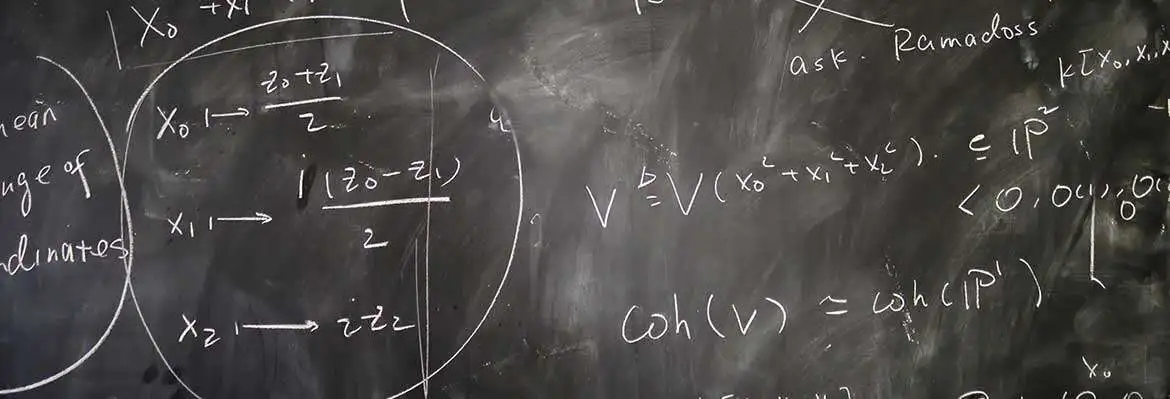 X₀ + x₁
ask. Ramadoss
k[X₀, X₁, X
nean
nge of
ndinates
X₀ ↦ (z₀+z₁)/2
x₁ ↦ i(z₀−z₁)/2
x₂ ↦ iz₂
V ≜ V(x₀² + x₁² + x₂²). ⊆ ℙ²
< O, O(1), O(
Coh(V) ≃ Coh(ℙ¹)
x₀